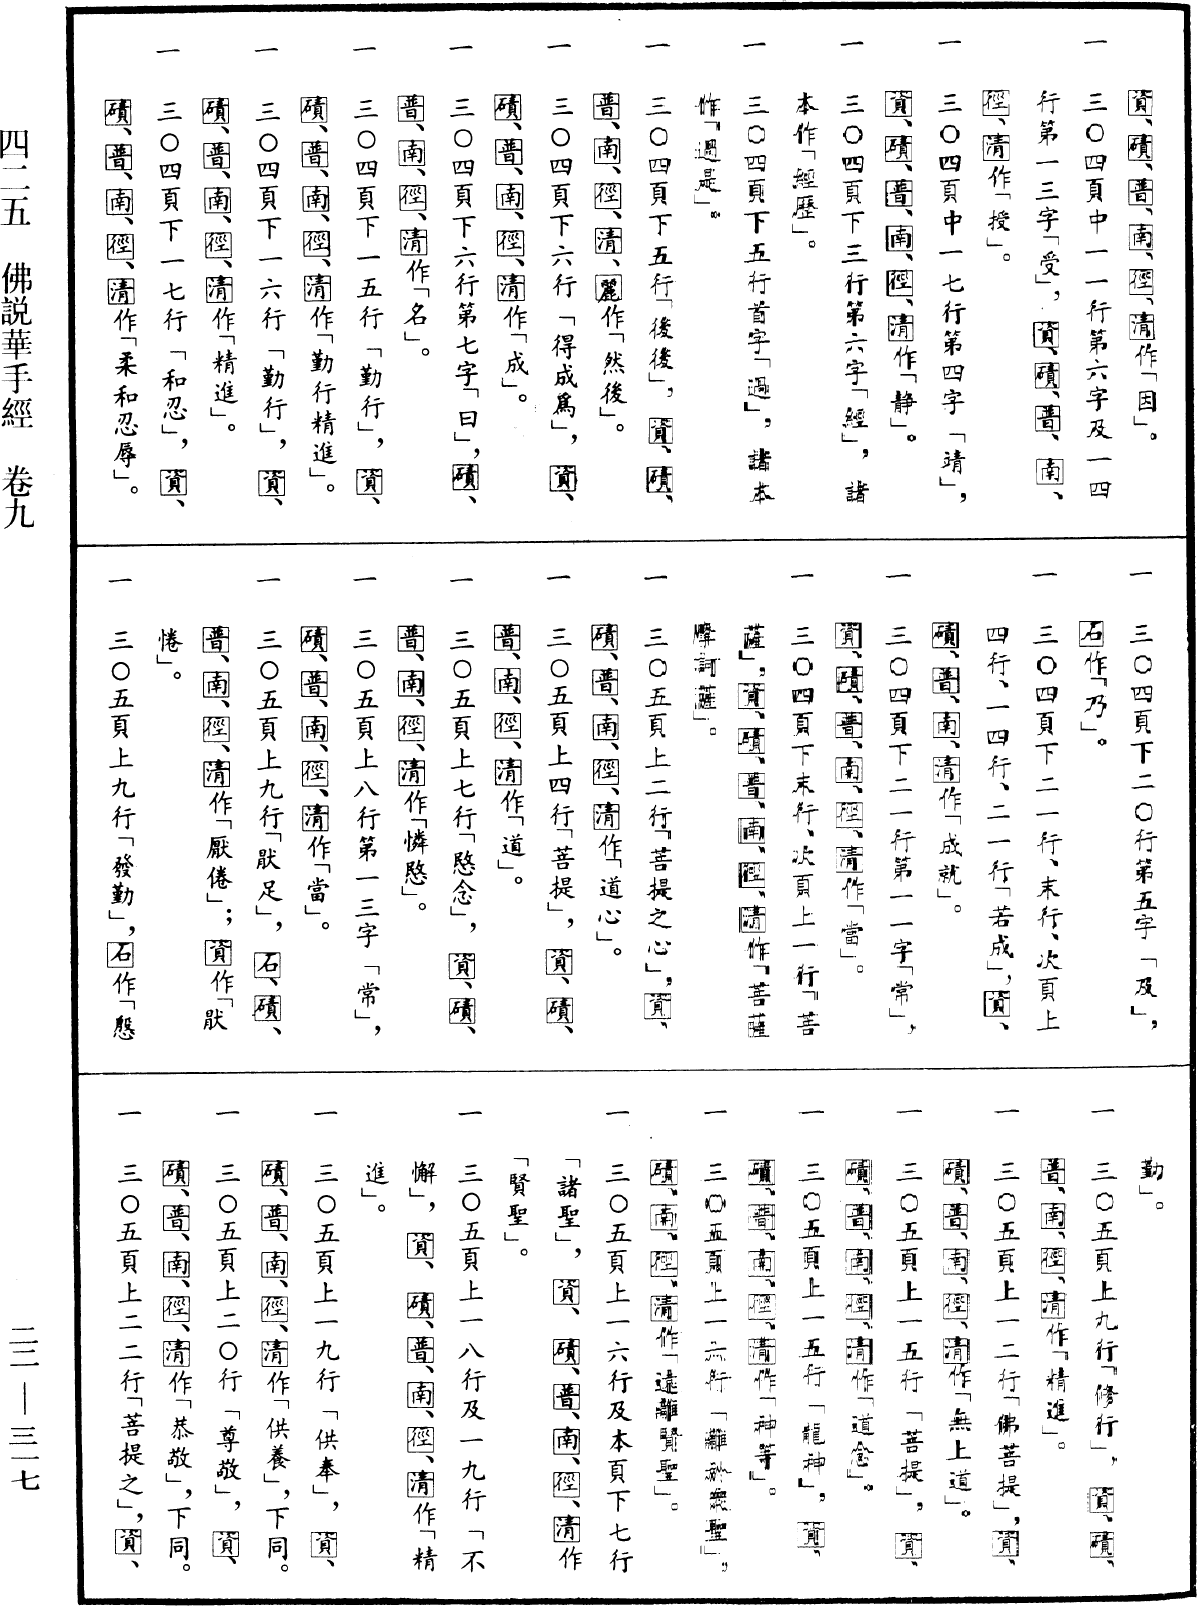 資、磧、普、南、徑、清作「因」。
一 三〇四頁中一一行第六字及一四
行第一三字「受」，資、磧、普、南、
徑、清作「授」。
一 三〇四頁中一七行第四字「靖」，
資、磧、普、南、徑、清作「静」。
一 三〇四頁下三行第六字「經」，諸
本作「經歷」。
一 三〇四頁下五行首字「過」，諸本
作「過是」。
一 三〇四頁下五行「後後」，資、磧、
普、南、徑、清、麗作「然後」。
一 三〇四頁下六行「得成爲」，資、
磧、普、南、徑、清作「成」。
一 三〇四頁下六行第七字「曰」，磧、
普、南、徑、清作「名」。
一 三〇四頁下一五行「勤行」，資、
磧、普、南、徑、清作「勤行精進」。
一 三〇四頁下一六行「勤行」，資、
磧、普、南、徑、清作「精進」。
一 三〇四頁下一七行「和忍」，資、
磧、普、南、徑、清作「柔和忍辱」。
一 三〇四頁下二〇行第五字「及」，
石作「乃」。
一 三〇四頁下二一行、末行、次頁上
四行、一四行、二一行「若成」，資、
磧、普、南、清作「成就」。
一 三〇四頁下二一行第一一字「常」，
資、磧、普、南、徑、清作「當」。
一 三〇四頁下末行、次頁上一行「菩
薩」，資、磧、普、南、徑、清作「菩薩
摩訶薩」。
一 三〇五頁上二行「菩提之心」，資、
磧、普、南、徑、清作「道心」。
一 三〇五頁上四行「菩提」，資、磧、
普、南、徑、清作「道」。
一 三〇五頁上七行「愍念」，資、磧、
普、南、徑、清作「憐愍」。
一 三〇五頁上八行第一三字「常」，
磧、普、南、徑、清作「當」。
一 三〇五頁上九行「猒足」，石、磧、
普、南、徑、清作「厭倦」；資作「猒
惓」。
一 三〇五頁上九行「發勤」，石作「慇
勤」。
一 三〇五頁上九行「修行」，資、磧、
普、南、徑、清作「精進」。
一 三〇五頁上一二行「佛菩提」，資、
磧、普、南、徑、清作「無上道」。
一 三〇五頁上一五行「菩提」，資、
磧、普、南、徑、清作「道念」。
一 三〇五頁上一五行「龍神」，資、
磧、普、南、徑、清作「神等」。
一 三〇五頁上一六行「離於衆聖」，
磧、南、徑、清作「遠離賢聖」。
一 三〇五頁上一六行及本頁下七行
「諸聖」，資、磧、普、南、徑、清作
「賢聖」。
一 三〇五頁上一八行及一九行「不
懈」，資、磧、普、南、徑、清作「精
進」。
一 三〇五頁上一九行「供奉」，資、
磧、普、南、徑、清作「供養」，下同。
一 三〇五頁上二〇行「尊敬」，資、
磧、普、南、徑、清作「恭敬」，下同。
一 三〇五頁上二二行「菩提之」，資、
四二五 佛説華手經 卷九
二二—三一七